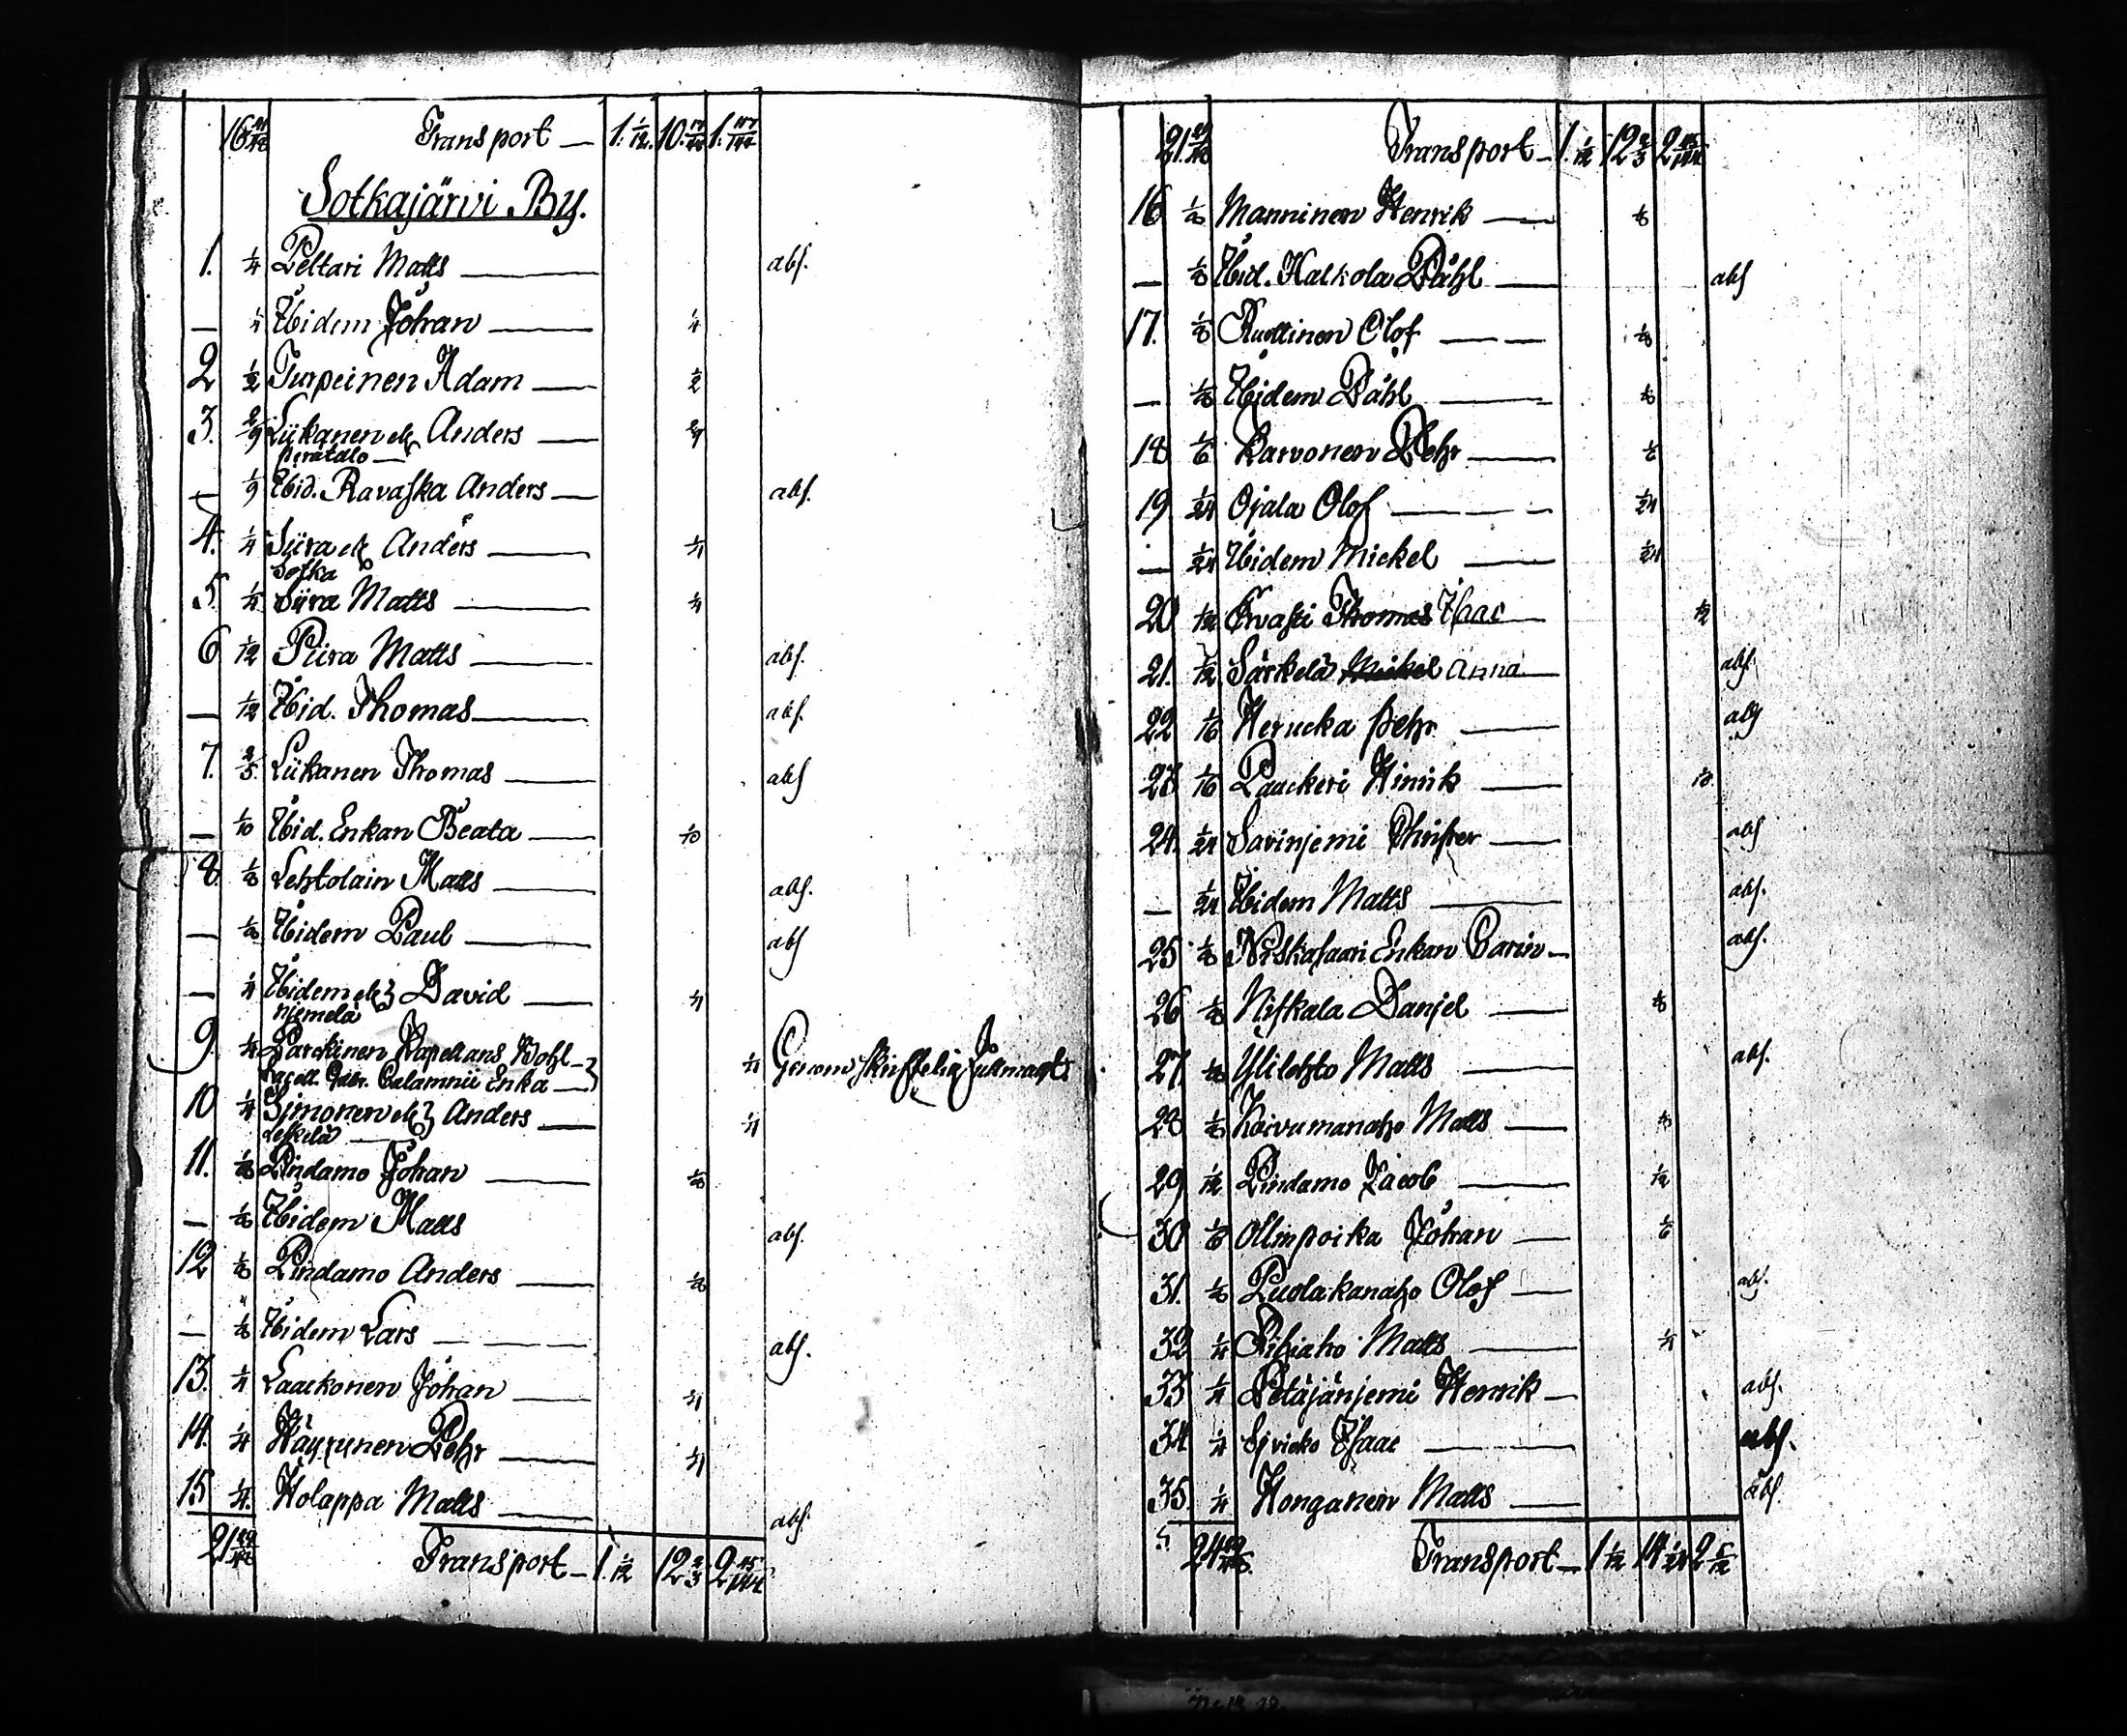 16 Transport — 1. 1/12. 10. 1.
Sotkajärvi By.
1. 1/4 Peltari Matts — abs.
— 1/4 Ibidem Johan — 1/4
2 1/2 Turpeinen Adam — 1/2
3. 2/9 Liikanen elr Anders — 2/9
perätalo —
— 1/9 Ibid. Ravaska Anders — abs.
4. 1/4 Siira elr Anders — 1/4
Sotka
5. 1/4 Siira Matts — 1/4
6 1/12 Piira Matts — abs.
— 1/12 Ibid. Thomas — abs.
7. 2/5. Liikanen Thomas — abs
— 1/10 Ibid. Enkan Beata — 1/10
8. 1/8 Lehtolain Matts — abs.
— 1/8 Ibidem Paul — abs
— 1/4 Ibidem elr David — 1/4
Njemelä
9. 1/4 Parckinen Kapellans Bohl —
Capell. Gabr. Calamnii Enka — 1/4 Genom skriftelig fullmagt
10 1/4 Simonen elr Anders — 1/4
Leskelä —
11. 1/8 Pindamo Johan — 1/8
— 1/8 Ibidem Matts abs.
12 1/8 Pindamo Anders — 1/8
— 1/8 Ibidem Lars — abs.
13. 1/4 Laackonen Johan — 1/4
14. 1/4 Häyrynen Pehr — 1/4
15 1/4. Holappa Matts — abs.
21 Transport — 1. 1/12 12 2/3. 2
21 Transport — 1. 1/12 12 2/3 2
16 1/8 Manninen Henrik — 1/8
— 1/8 Ibid. Halkola Påhl — abs
17. 1/8 Ruottinen Olof — 1/8
— 1/8 Ibidem Påhl — 1/8
18 1/6 Karvonen Pehr — 1/6
19 1/24 Ojala Olof — 1/24
— 1/24 Ibidem Mickel — 1/24
20 1/12 Ervasti Thomas Isaac — 1/12
21. 1/12 Särkelä Mickel Anna — abs.
22 1/16 Herucka Pehr — abs
23 1/16 Paackeri Hinrik —
24. 1/24 Savinjemi Christer — abs
— 1/24 Ibidem Matts — abs.
25 1/8 Niskasaari Enkan Carin — abs.
26 1/8 Niskala Danjel — 1/8
27. 1/8 Ylilehto Matts — abs.
28 1/8 Koivumanaho Matts — 1/8
29 1/12 Pindamo Jacob — 1/12
30 1/6 Ollinpoika Johan — 1/6
31. 1/8 Puolakanaho Olof — abs.
32 1/4 Matts — 1/4
33 1/4 Petäjänjemi Henrik — abs.
34 1/4 Isaac — abs.
35 1/4 Honganen Matts — abs.
24 Transport — 1 1/12 14 1/24 2 5/12